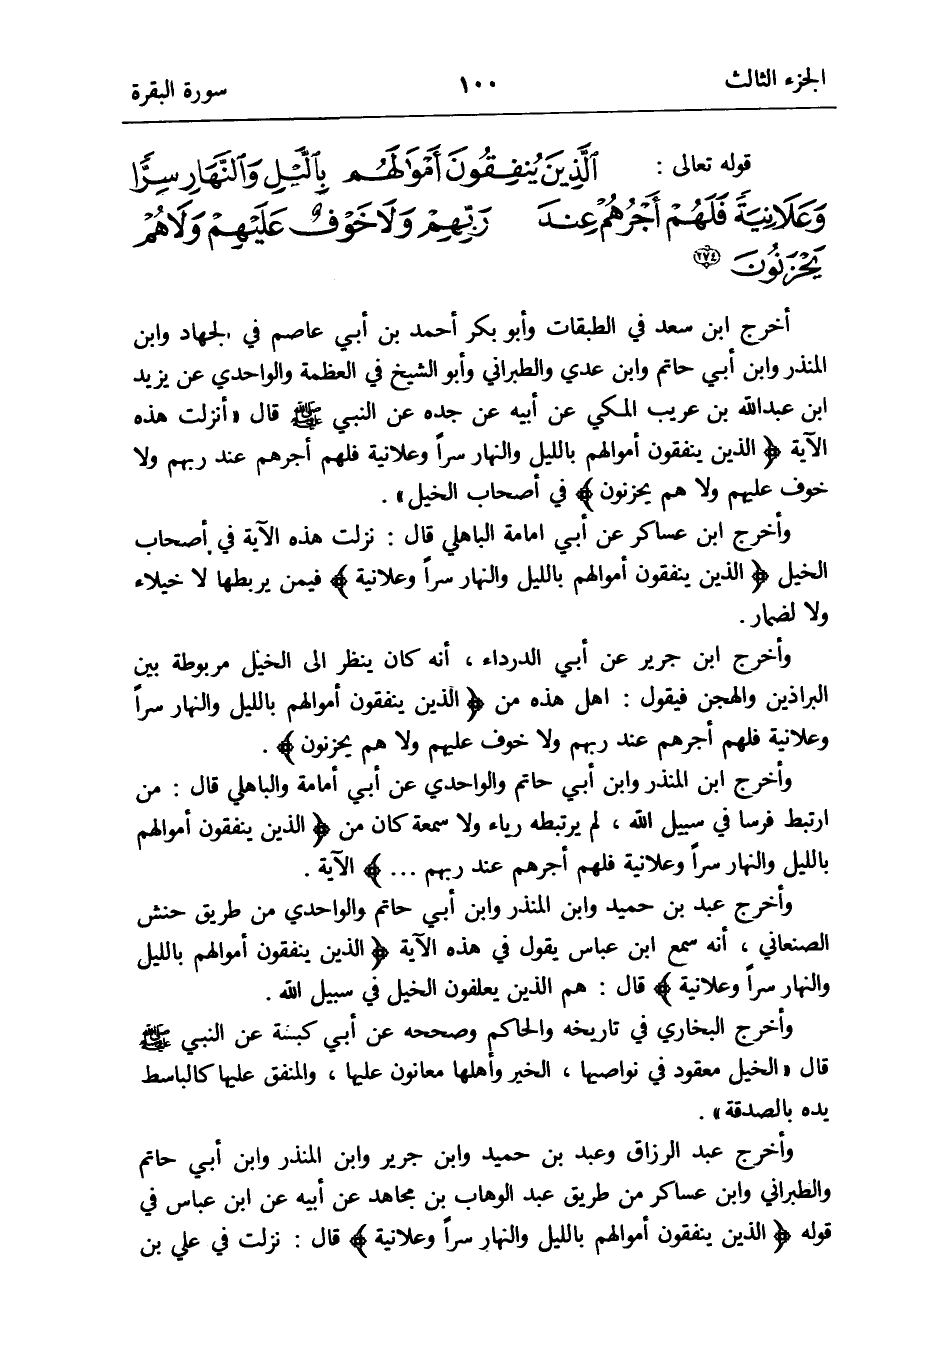 الجزء الثالث ١٠٠ سورة البقرة
قوله تعالى : ٱلَّذِينَ يُنفِقُونَ أَمْوَٰلَهُم بِٱلَّيْلِ وَٱلنَّهَارِ سِرًّا
وَعَلَانِيَةً فَلَهُمْ أَجْرُهُمْ عِندَ رَبِّهِمْ وَلَا خَوْفٌ عَلَيْهِمْ وَلَا هُمْ
يَحْزَنُونَ ٢٧٤
أخرج ابن سعد في الطبقات وأبو بكر أحمد بن أبي عاصم في الجهاد وابن
المنذر وابن أبي حاتم وابن عدي والطبراني وأبو الشيخ في العظمة والواحدي عن يزيد
ابن عبدالله بن عريب المكي عن أبيه عن جده عن النبي ﷺ قال « أنزلت هذه
الآية ﴿ الذين ينفقون أموالهم بالليل والنهار سراً وعلانية فلهم أجرهم عند ربهم ولا
خوف عليهم ولا هم يحزنون ﴾ في أصحاب الخيل » .
وأخرج ابن عساكر عن أبي امامة الباهلي قال : نزلت هذه الآية في أصحاب
الخيل ﴿ الذين ينفقون أموالهم بالليل والنهار سراً وعلانية ﴾ فيمن يربطها لا خيلاء
ولا لضمار .
وأخرج ابن جرير عن أبي الدرداء ، أنه كان ينظر الى الخيل مربوطة بين
البراذين والهجن فيقول : اهل هذه من ﴿ الذين ينفقون أموالهم بالليل والنهار سراً
وعلانية فلهم أجرهم عند ربهم ولا خوف عليهم ولا هم يحزنون ﴾ .
وأخرج ابن المنذر وابن أبي حاتم والواحدي عن أبي أمامة والباهلي قال : من
ارتبط فرسا في سبيل الله ، لم يرتبطه رياء ولا سمعة كان من ﴿ الذين ينفقون أموالهم
بالليل والنهار سراً وعلانية فلهم أجرهم عند ربهم ... ﴾ الآية .
وأخرج عبد بن حميد وابن المنذر وابن أبي حاتم والواحدي من طريق حنش
الصنعاني ، أنه سمع ابن عباس يقول في هذه الآية ﴿ الذين ينفقون أموالهم بالليل
والنهار سراً وعلانية ﴾ قال : هم الذين يعلفون الخيل في سبيل الله .
وأخرج البخاري في تاريخه والحاكم وصححه عن أبي كبشة عن النبي ﷺ
قال « الخيل معقود في نواصيها ، الخير وأهلها معانون عليها ، والمنفق عليها كالباسط
يده بالصدقة » .
وأخرج عبد الرزاق وعبد بن حميد وابن جرير وابن المنذر وابن أبي حاتم
والطبراني وابن عساكر من طريق عبد الوهاب بن مجاهد عن أبيه عن ابن عباس في
قوله ﴿ الذين ينفقون أموالهم بالليل والنهار سراً وعلانية ﴾ قال : نزلت في علي بن